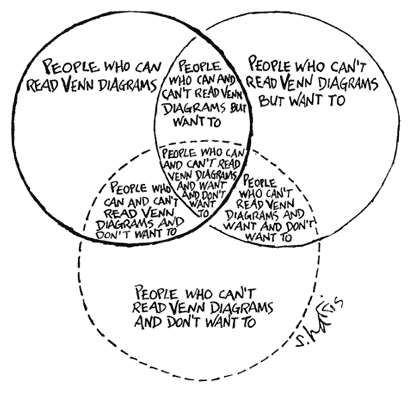 PEOPLE WHO CAN
READ VENN DIAGRAMS
PEOPLE
WHO CAN AND
CAN'T READ VENN
DIAGRAMS BUT
WANT TO
PEOPLE WHO CAN'T
READ VENN DIAGRAMS
BUT WANT TO
PEOPLE WHO CAN
AND CAN'T READ
VENN DIAGRAMS
AND WANT
AND DON'T
WANT
TO
PEOPLE WHO
CAN AND CAN'T
READ VENN
DIAGRAMS AND
DON'T WANT TO
PEOPLE
WHO CAN'T
READ VENN
DIAGRAMS AND
WANT AND DON'T
WANT TO
PEOPLE WHO CAN'T
READ VENN DIAGRAMS
AND DON'T WANT TO
S. Harris